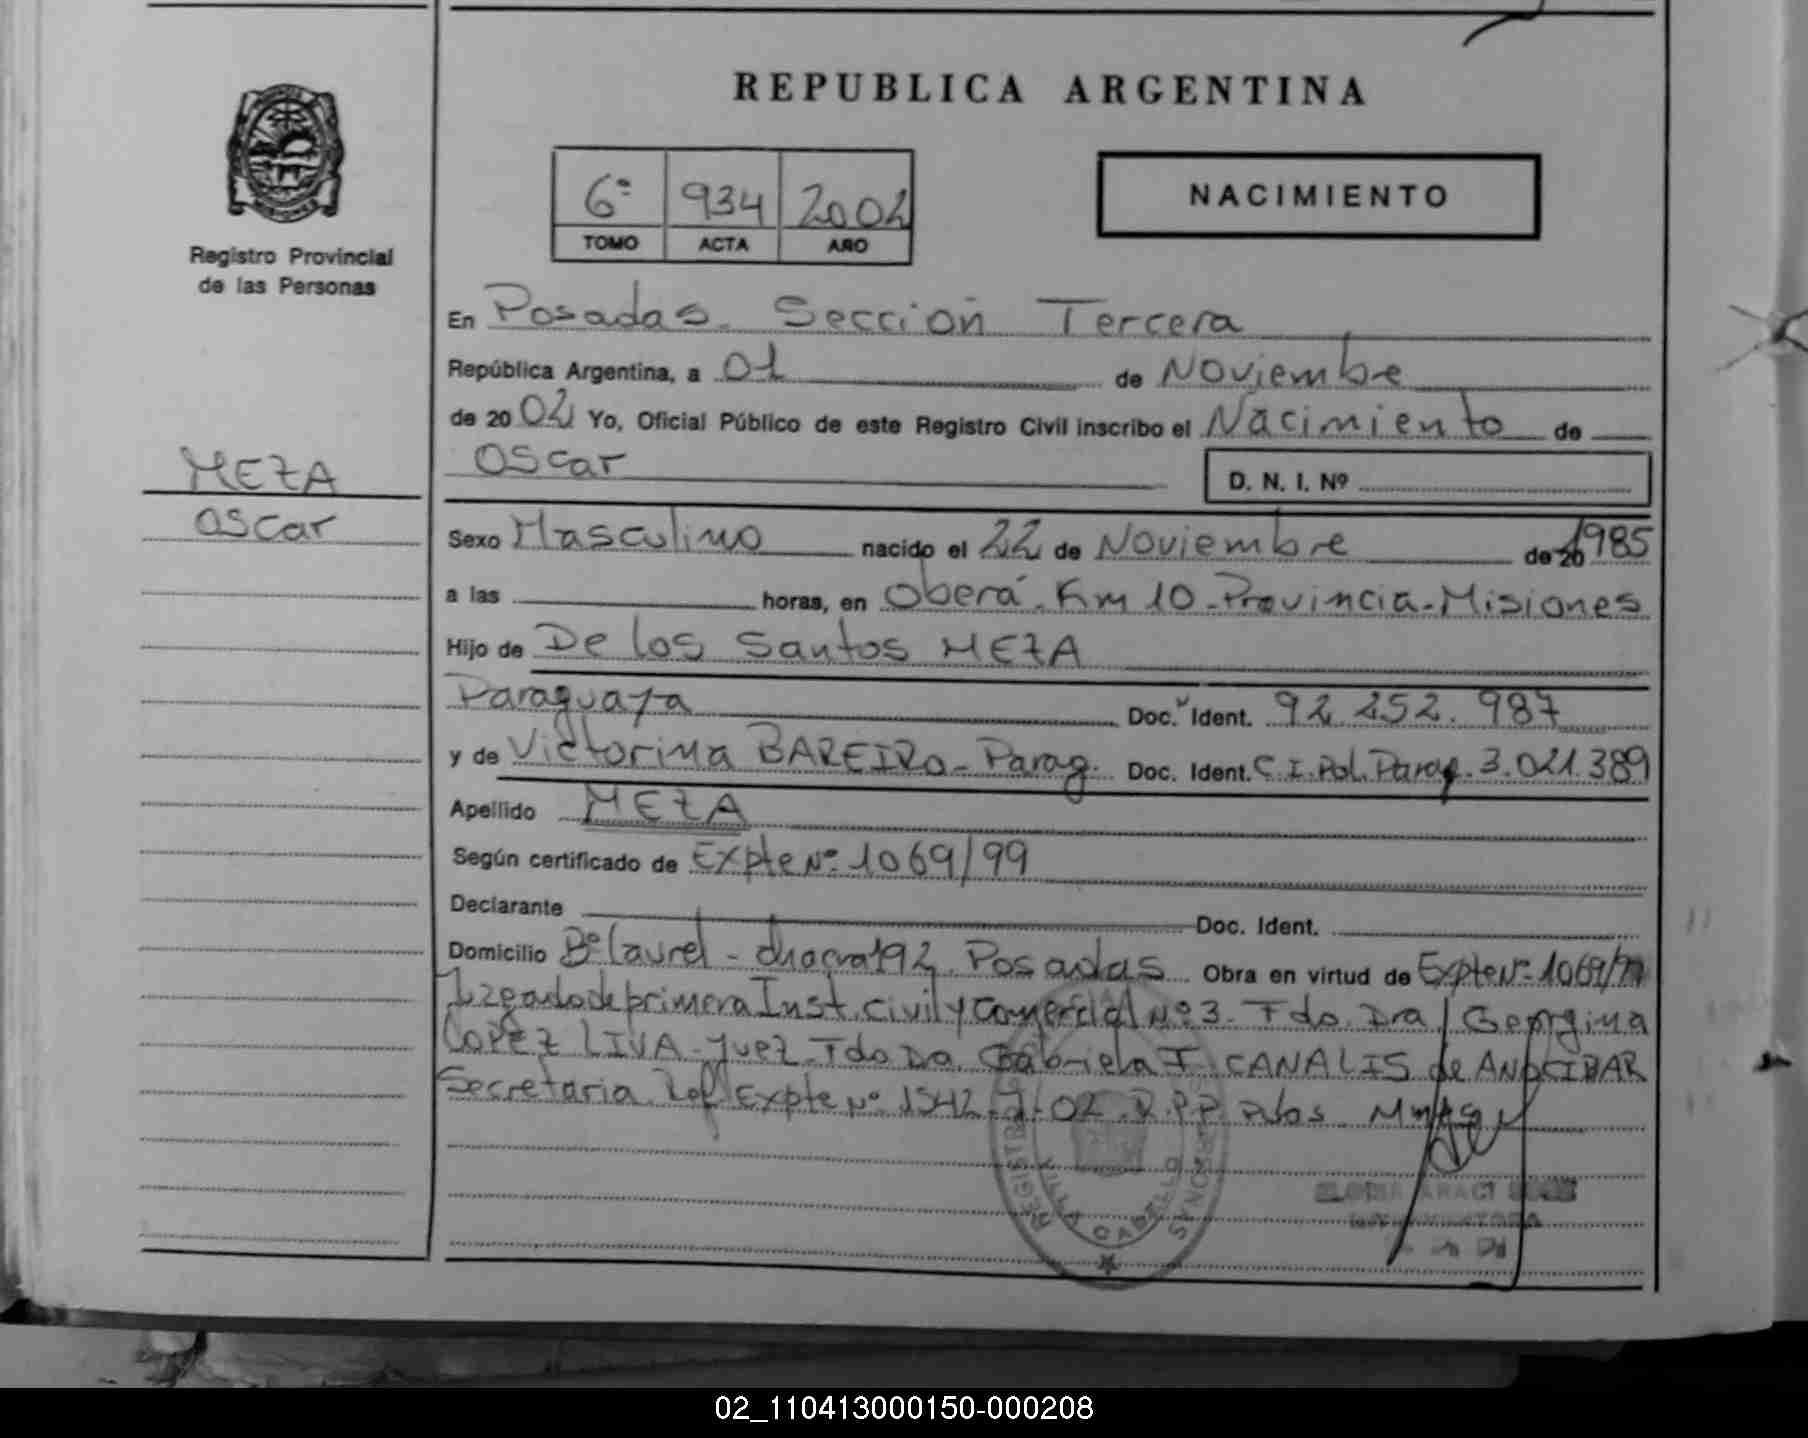 REPUBLICA ARGENTINA
6º 934 2002
TOMO ACTA AÑO
NACIMIENTO
Registro Provincial
de las Personas
En Posadas. Sección Tercera
República Argentina, a 01 de Noviembre
de 20 02 Yo, Oficial Público de este Registro Civil inscribo el Nacimiento de
Oscar
D. N. I. Nº
MEZA
Oscar
Sexo Masculino nacido el 22 de Noviembre de 20 1985
a las horas, en Oberá. Km 10 - Provincia - Misiones
Hijo de De los Santos MEZA
Paraguaya Doc. Ident. 92.252.987
y de Victorina BAREIRO - Parag. Doc. Ident. C.I. Pol. Parag. 3.021.389
Apellido MEZA
Según certificado de Expte Nº 1069/99
Declarante Doc. Ident.
Domicilio Bº Laurel - chacra 192 Posadas Obra en virtud de Expte Nº 1069/99
Juzgado de primera Inst. Civil y Comercial Nº 3. Fdo. Dra Georgina
LOPEZ LIVA - Juez. Fdo Dra. Gabriela I. CANALIS de ANOCIBAR
Secretaria. Ref. Expte Nº 1542 02. R.P.P. Pdas
REGISTR
VILLA CABELLO
PERSONAS
02_110413000150-000208